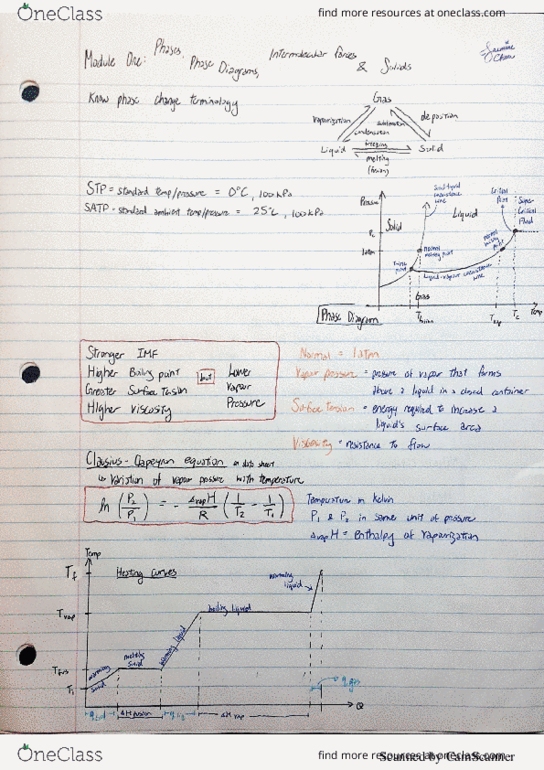 OneClass
find more resources at oneclass.com
Module One: Phases, Phase Diagrams, Intermolecular forces & Solids
Know phase change terminology
Gas
vaporization
condensation
sublimation
deposition
Liquid
freezing
Solid
melting
(fusion)
STP = standard temp/pressure = 0°C, 100kPa
SATP - standard ambient temp/pressure = 25°C, 100kPa
Pressure
Solid
Liquid
Super
Critical
Fluid
1atm
normal melting point
Gas
Phase Diagram
Temp
Stronger IMF
Higher Boiling point
Greater Surface Tension
Higher Viscosity
but
Lower
Vapor
Pressure
Normal = 1atm
Vapor pressure = pressure of vapor that forms
above a liquid in a closed container
Surface tension = energy required to increase a
liquid's surface area
Viscosity = resistance to flow
Clausius-Clapeyron equation on data sheet
↳ variation of vapor pressure with temperature
ln (P₂/P₁) = - ΔvapH/R (1/T₂ - 1/T₁)
Temperature in kelvin
P₁ & P₂ in same unit of pressure
ΔvapH = enthalpy of vaporization
Temp
Heating Curves
Tf
warming
liquid
Tvap
boiling liquid
warming liquid
melting
solid
Tfus
warming
solid
Ti
ΔH fusion
ΔH vap
Q
OneClass
find more resources at oneclass.com
Scanned by CamScanner